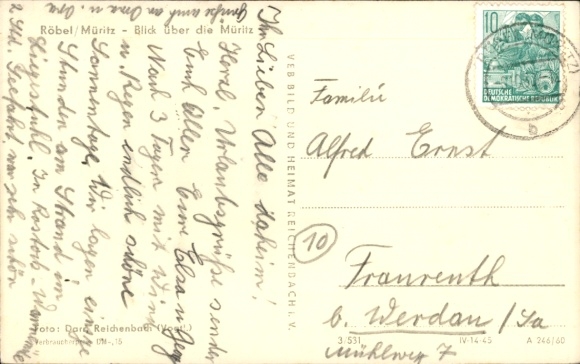 Grüße auch an Oma u. Opa
Röbel/Müritz - Blick über die Müritz
Ihr Lieben Alle daheim!
Herzl. Urlaubsgrüße sendet
Euch Allen Eure Elsa u.
Nach 3 Tagen mit Wind
u. Regen endlich schöne
Sonnentage. Wir lagen einige
Stunden am Strand im
Liegestuhl. In Rostock-Warnemünde
2 Std. Seefahrt war sehr schön
Foto: Darr Reichenbach (Vogtl.)
Verbraucherpreis DM -,15
VEB BILD UND HEIMAT REICHENBACH i. V.
10
DEUTSCHE
DEMOKRATISCHE REPUBLIK
b
Familie
Alfred Ernst
10
Fraureuth
b. Werdau / Sa
Mühlweg 7
3 531 IV-14-45 A 246/60